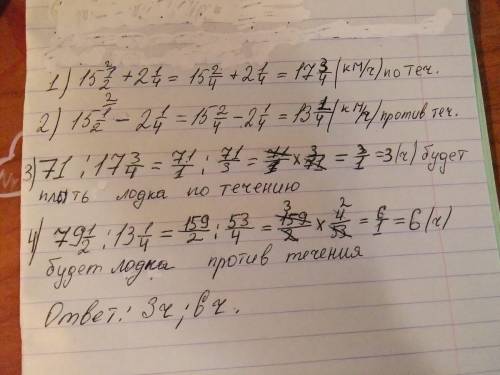 1) 15 1/2 + 2 1/4 = 15 2/4 + 2 1/4 = 17 3/4 (км/ч) по теч.
2) 15 1/2 - 2 1/4 = 15 2/4 - 2 1/4 = 13 1/4 (км/ч) против теч.
3) 71 : 17 3/4 = 71/1 : 71/3 = 71/1 × 3/71 = 3/1 = 3 (ч) будет
плыть лодка по течению
4) 79 1/2 : 13 1/4 = 159/2 : 53/4 = 159/2 × 4/53 = 6/1 = 6 (ч)
будет лодка против течения
Ответ: 3ч ; 6 ч.